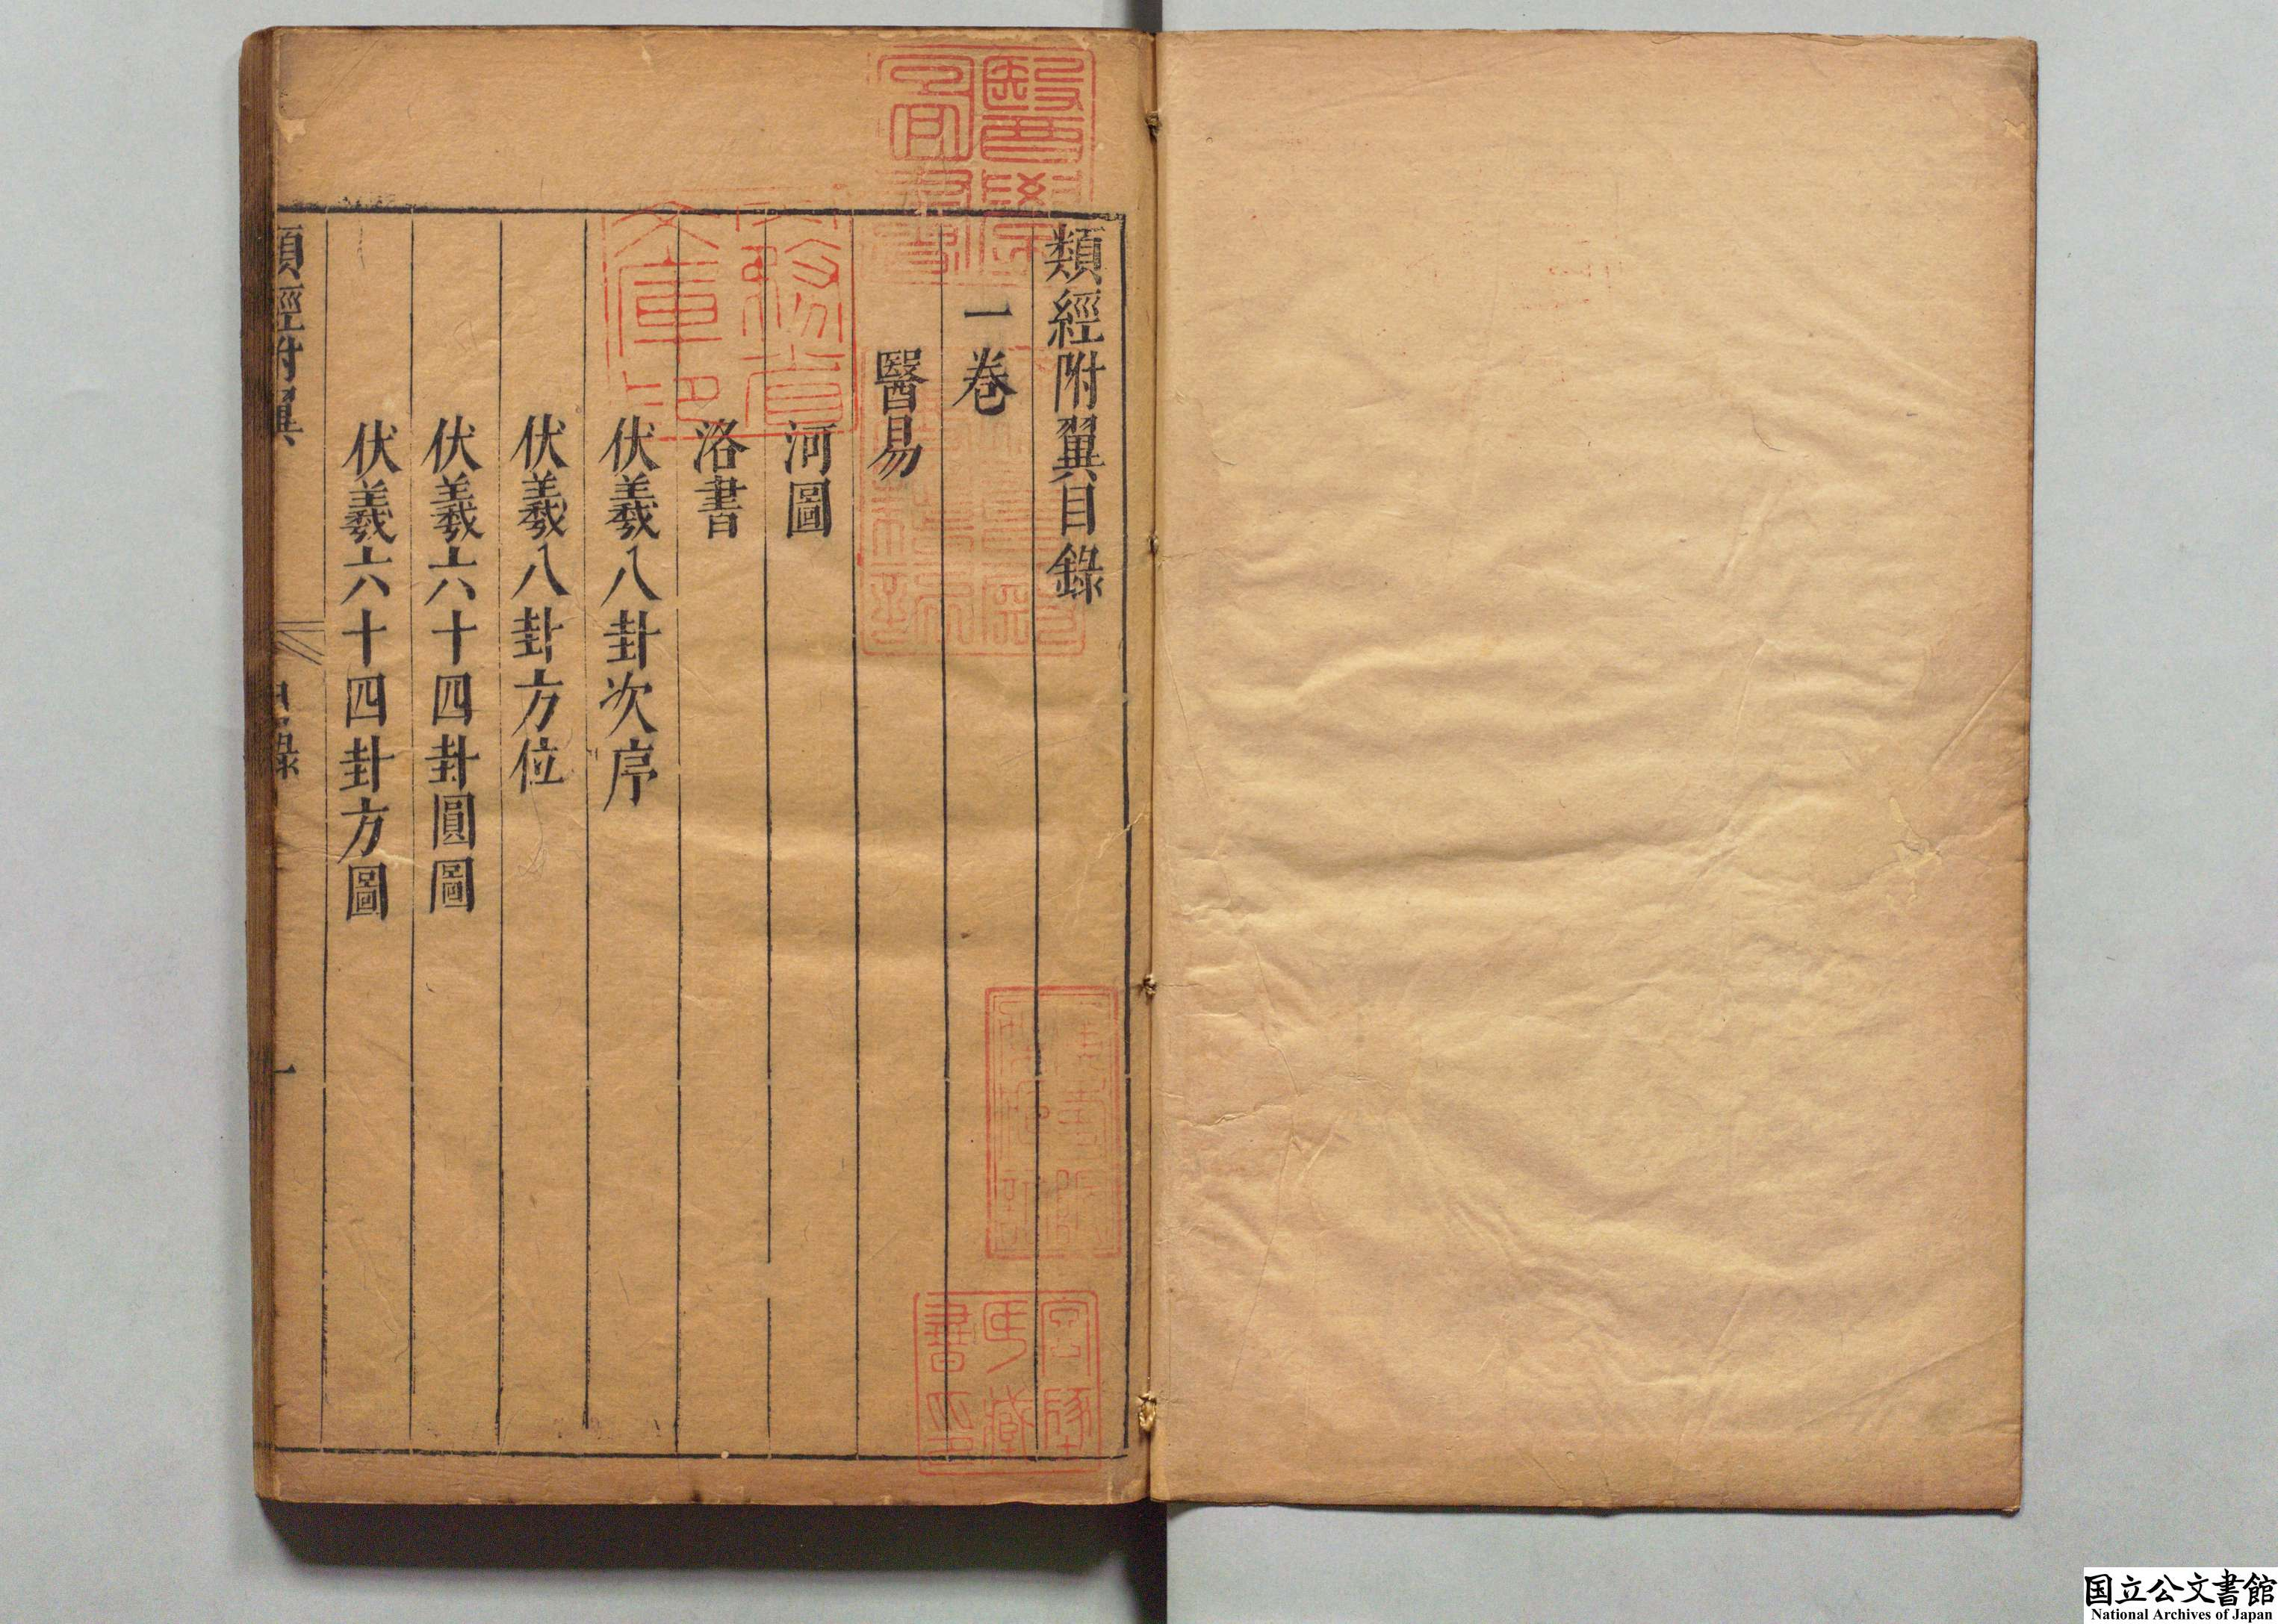 類經附翼目錄
一卷
醫易
河圖
洛書
伏羲八卦次序
伏羲八卦方位
伏羲六十四卦圓圖
伏羲六十四卦方圖
類經附翼
目錄
一
文庫印
国立公文書館
National Archives of Japan